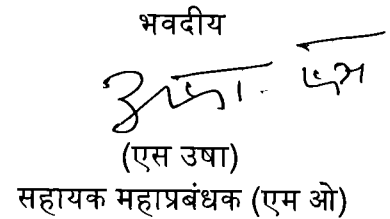 भवदीय
उषा. एस
(एस उषा)
सहायक महाप्रबंधक (एम ओ)